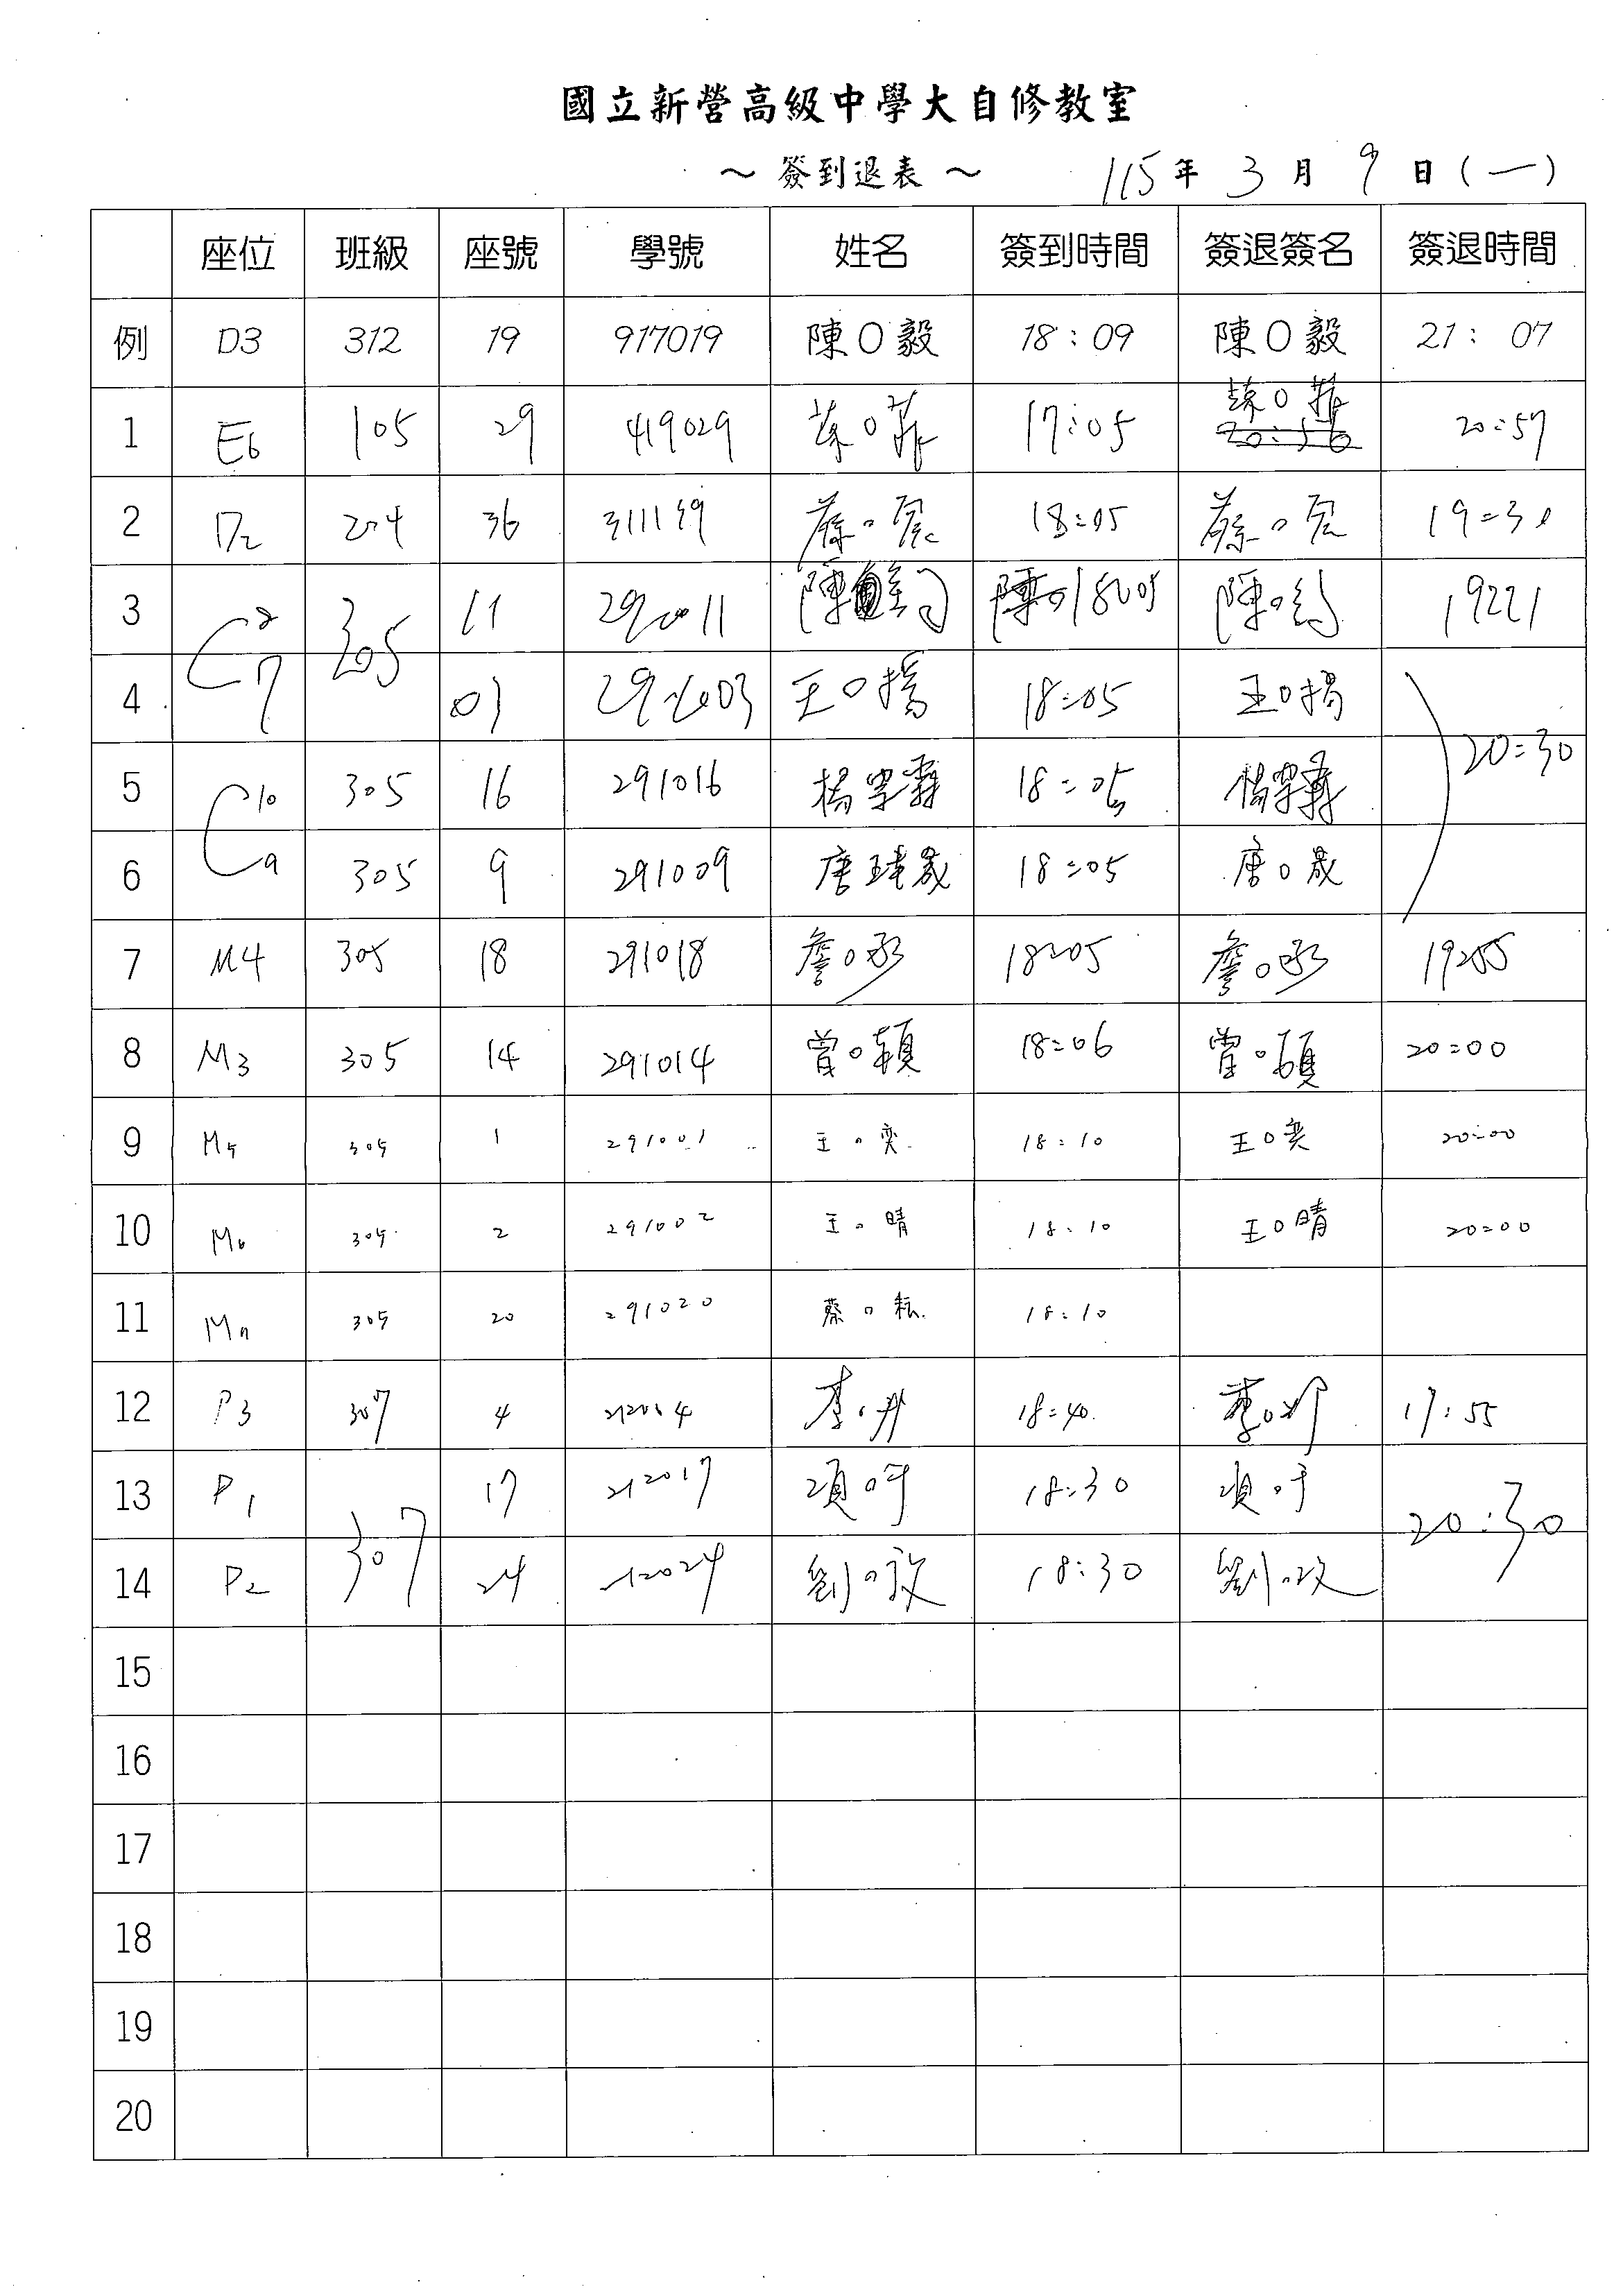 國立新營高級中學大自修教室
～ 簽到退表 ～ 115年 3月 9日(一)
座位 班級 座號 學號 姓名 簽到時間 簽退簽名 簽退時間
例 D3 312 19 917019 陳O毅 18:09 陳O毅 21:07
1 E6 105 29 419029 17:05 20:56 20:57
2 D2 204 36 18:05 19:30
3 C8 305 11 陳 18:05 陳 19:21
4 C7 03 王O 18:05 王O 20:30
5 C10 305 16 291016 楊 18:05 楊
6 C9 305 9 291009 唐瑋晟 18:05 唐O晟
7 M4 305 18 291018 詹O丞 18:05 詹O丞
8 M3 305 14 291014 曾O穎 18:06 曾O穎 20:00
9 M5 305 1 291001 王O奕 18:10 王O奕 20:00
10 M6 305 2 291002 王O晴 18:10 王O晴 20:00
11 M7 305 20 291020 蔡O耘 18:10
12 P3 307 4 李O 18:40 李O 17:55
13 P1 307 17 212017 項O 18:30 項O 20:30
14 P2 24 212024 劉O 18:30 劉O
15
16
17
18
19
20